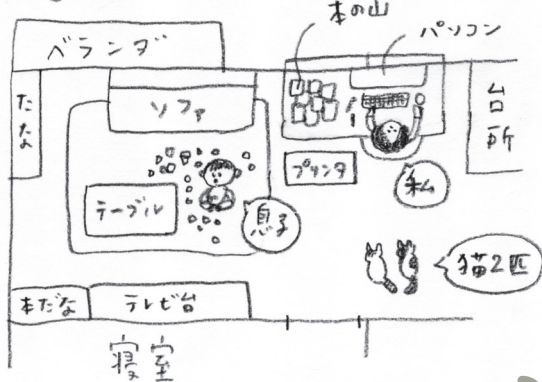 本の山
パソコン
ベランダ
たな
ソファ
台所
プリンタ
私
テーブル
息子
猫2匹
本だな
テレビ台
寝室